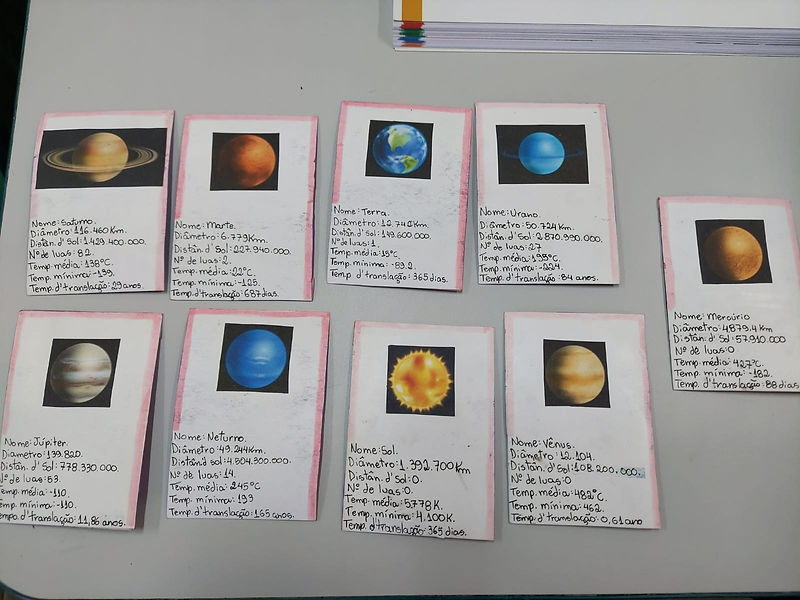 Nome: Saturno.
Diâmetro: 116.460 Km.
Distân. d' Sol: 1.429.400.000.
Nº de luas: 82.
Temp. média: -138°C.
Temp. mínima: -139.
Temp. d'translação: 29 anos.
Nome: Marte.
Diâmetro: 6.779 Km.
Distân. d' Sol: 227.940.000.
Nº de luas: 2.
Temp. média: 22°C.
Temp. mínima: -125.
Temp. d'translação: 687 dias.
Nome: Terra.
Diâmetro: 12.742 Km.
Distân. d' Sol: 149.600.000.
Nº de luas: 1.
Temp. média: 15°C.
Temp. mínima: -89.2.
Temp. d'translação: 365 dias.
Nome: Urano.
Diâmetro: 50.724 Km.
Distân. d' Sol: 2.870.990.000.
Nº de luas: 27
Temp. média:
Temp. mínima: -224.
Temp. d'translação: 84 anos.
Nome: Mercúrio
Diâmetro: 4879.4 Km
Distân. d' Sol: 57.910.000
Nº de luas: 0
Temp. média: 427°C.
Temp. mínima: -182.
Temp. d'translação: 88 dias
Nome: Júpiter.
Diâmetro: 139.820.
Distân. d' Sol: 778.330.000.
Nº de luas: 53.
Temp. média: -110.
Temp. mínima: -110.
Temp. d'translação: 11,86 anos.
Nome: Neturno.
Diâmetro: 49.244 Km.
Distân. d sol: 4.504.300.000.
Nº de luas: 14.
Temp. média: 245°C
Temp. mínima: 193
Temp. d'translação: 165 anos.
Nome: Sol.
Diâmetro: 1.392.700 Km
Distân. d' Sol: 0.
Nº de luas: 0.
Temp. média: 5778 K.
Temp. mínima: 4.100 K.
Temp. d'translação: 365 dias.
Nome: Vênus.
Diâmetro: 12.104.
Distân. d' Sol: 108.200.000.
Nº de luas: 0
Temp. média: 482°C.
Temp. mínima: 462.
Temp. d'translação: 0,61 ano